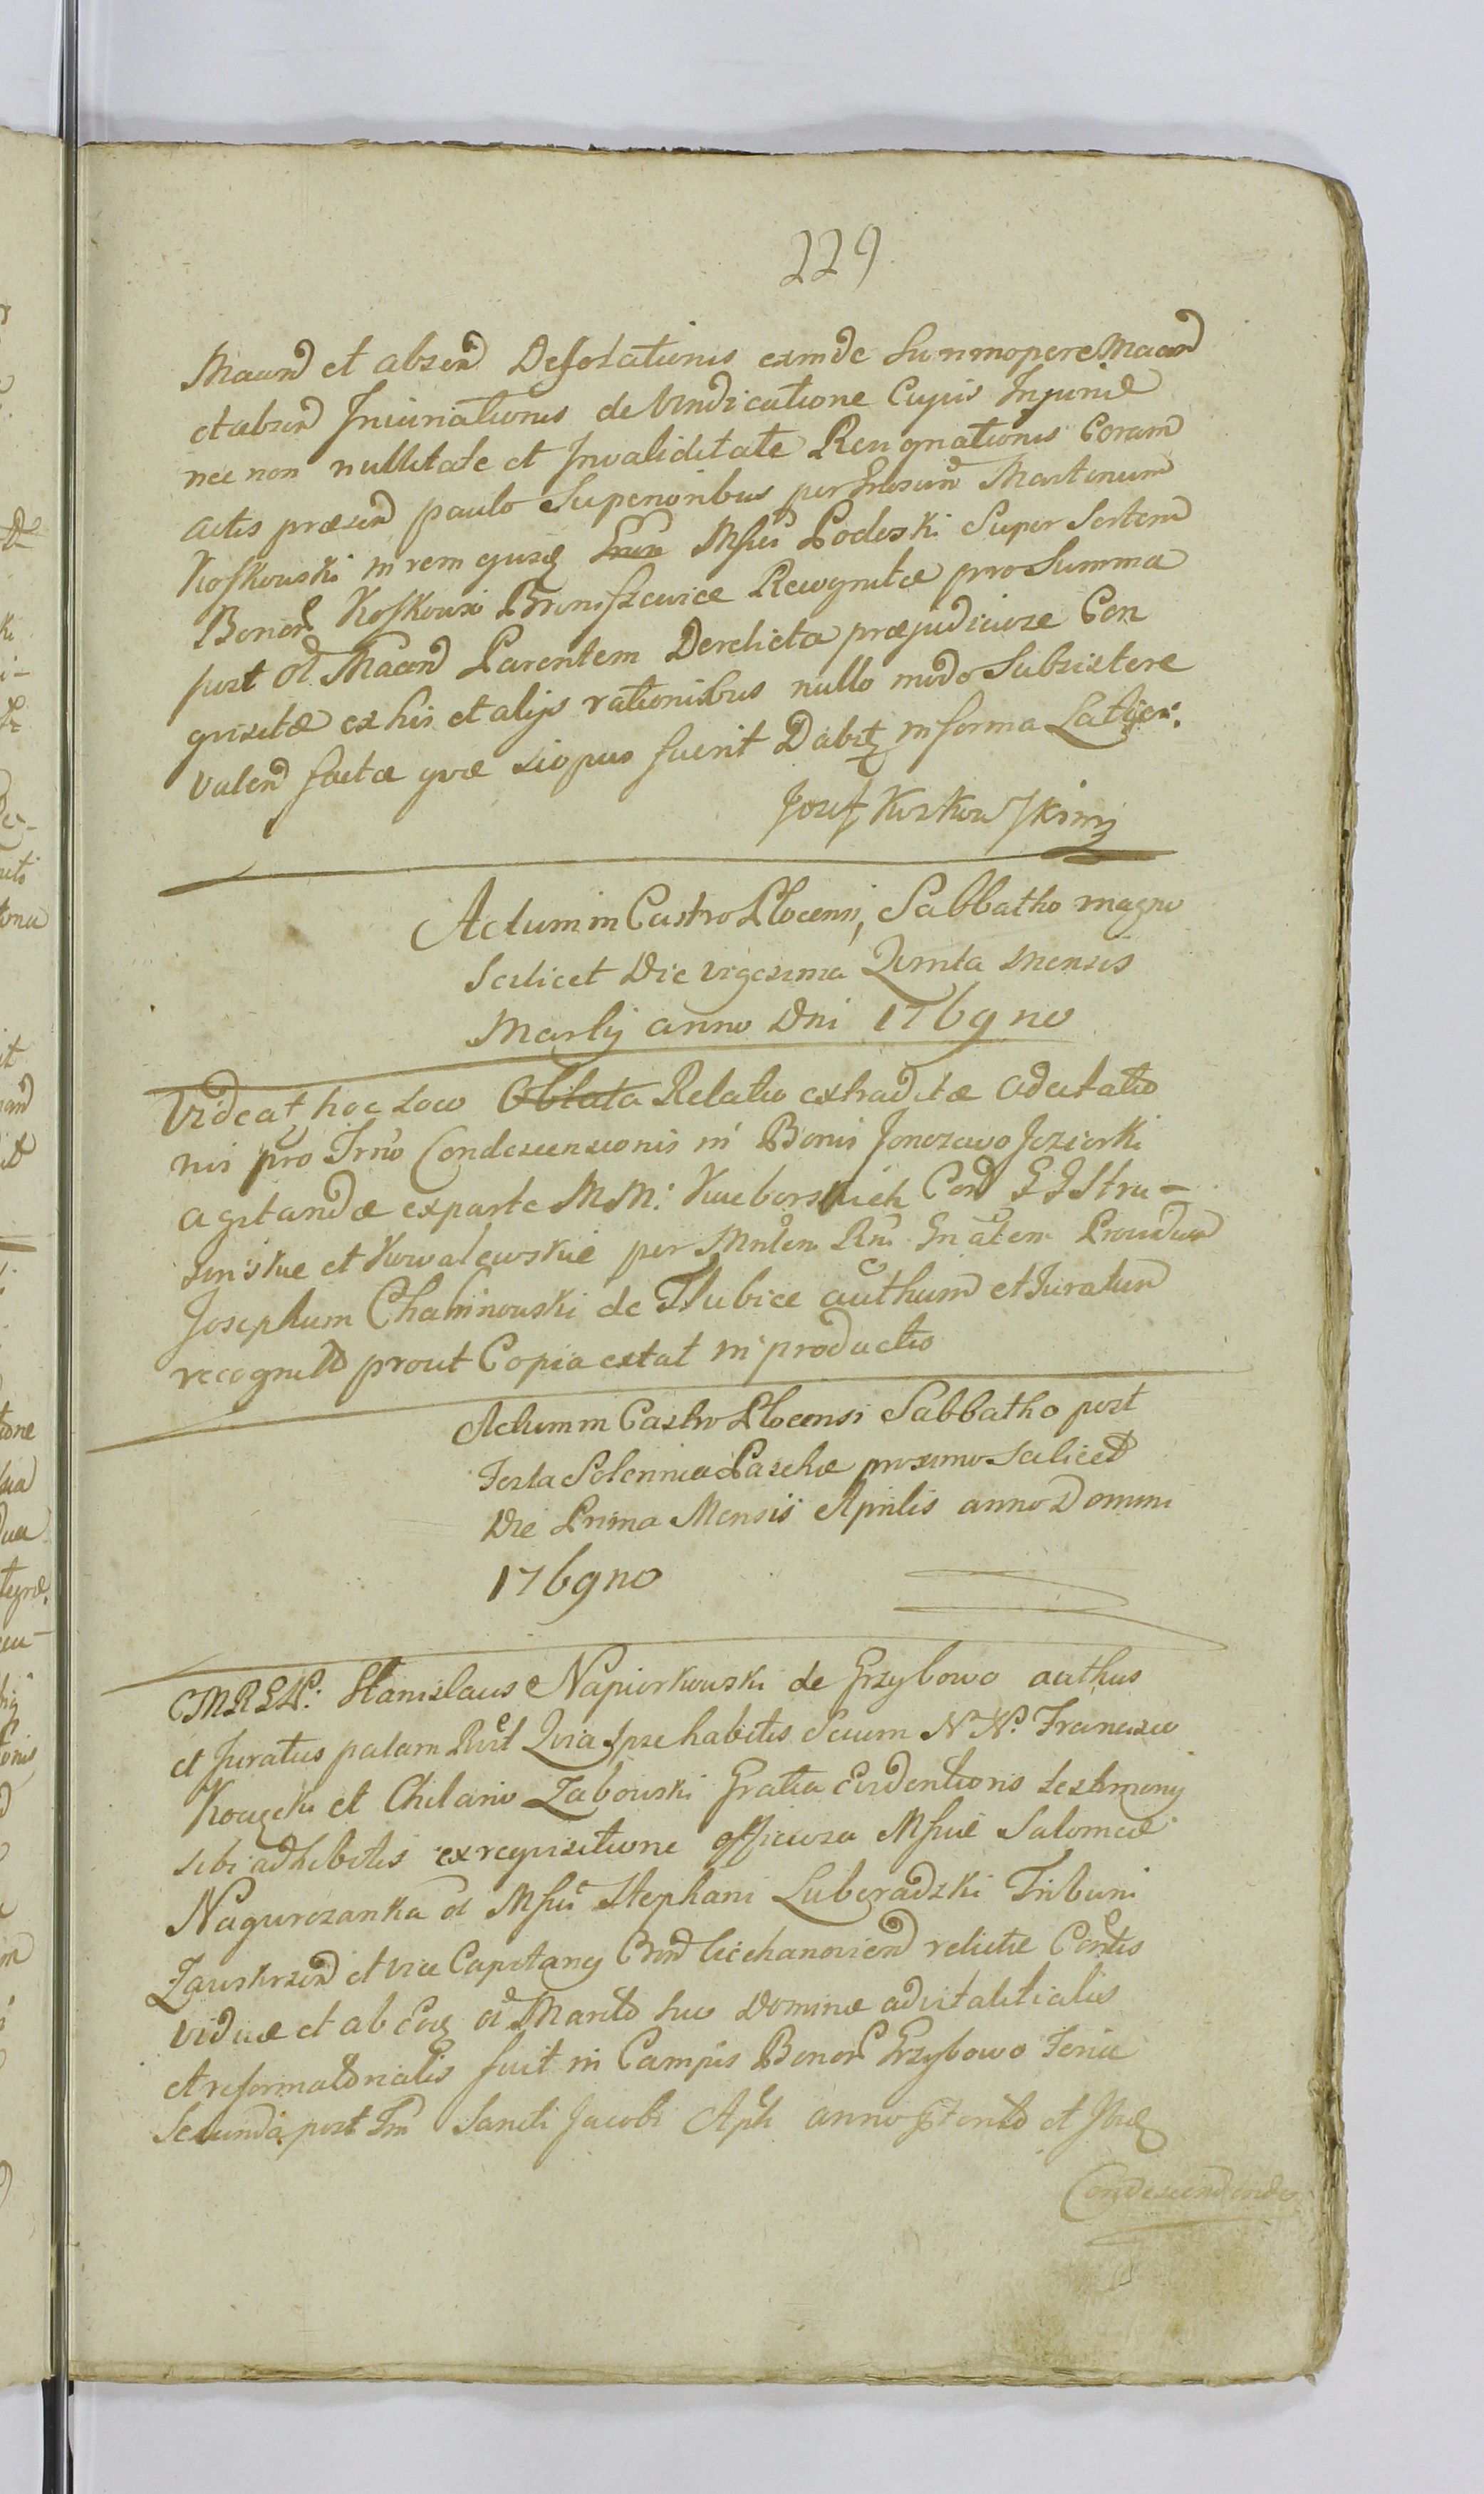 229
Maand et absen Desolationis exinde summopere Maand
et absen Iniuriationis de Vindicatione Cujus Injuriæ
nec non nullitate et Invaliditate Resignationis Coram
actis præsen paulo Superioribus per Gnosum Martinum
Koskowski in rem ejusq Msci Podoski Super Sortem
Bonor Koskowo Broniszewice Recognitæ pro Summa
post ol Maand Parentem Derelicta præjudiciose Con
quisitæ ex his et alijs rationibus nullo modo Subsistere
valen factæ quæ si opus fuerit Dabit in forma Latior:
Jozef Koskowski mp
Actum in Castro Plocensi, Sabbatho magno
Scilicet Die vigesima Quinta Mensis
Martij anno Dni 1769no
Videat hoc loco Oblata Relatio extraditæ Adcitatio
nis pro Trno Condescensionis in Bonis Jonczewo Jeziorki
agitandæ ex parte MM: Kucborskich Con GG Stru-
sinskie et Kowalewskie per Mnlem Rni Gnalem Providum
Josephum Chalinowski de Tlubice authum et Juratum
recognita prout Copia extat in productis
Actum in Castro Plocensi Sabbatho post
Festa Solennia Paschæ proximo Scilicet
Die Prima Mensis Aprilis anno Domini
1769no
MRGP: Stanislaus Napiorkowski de Grzybowo authus
et Juratus palam Rvit Quia Ipse habitis Secum NN. Francisco
et Chilario Zabowski Gratia Evidentioris testimonij
sibi adhibitis ex requisitione officiosa Mficæ Salomeæ
Nagurczanka ol Mfici Stephani Luberadzki Tribuni
Zawskrzen et vice Capitanej Cchanovien relictæ Cortis
viduæ et ab Eoq ol Marito suo Dominæ advitalitialis
et reformatorialis fuit in Campis Bonor Grzybowo Feria
Secunda post Fm Sancti Jacobi Apli anno et
Condescendendo